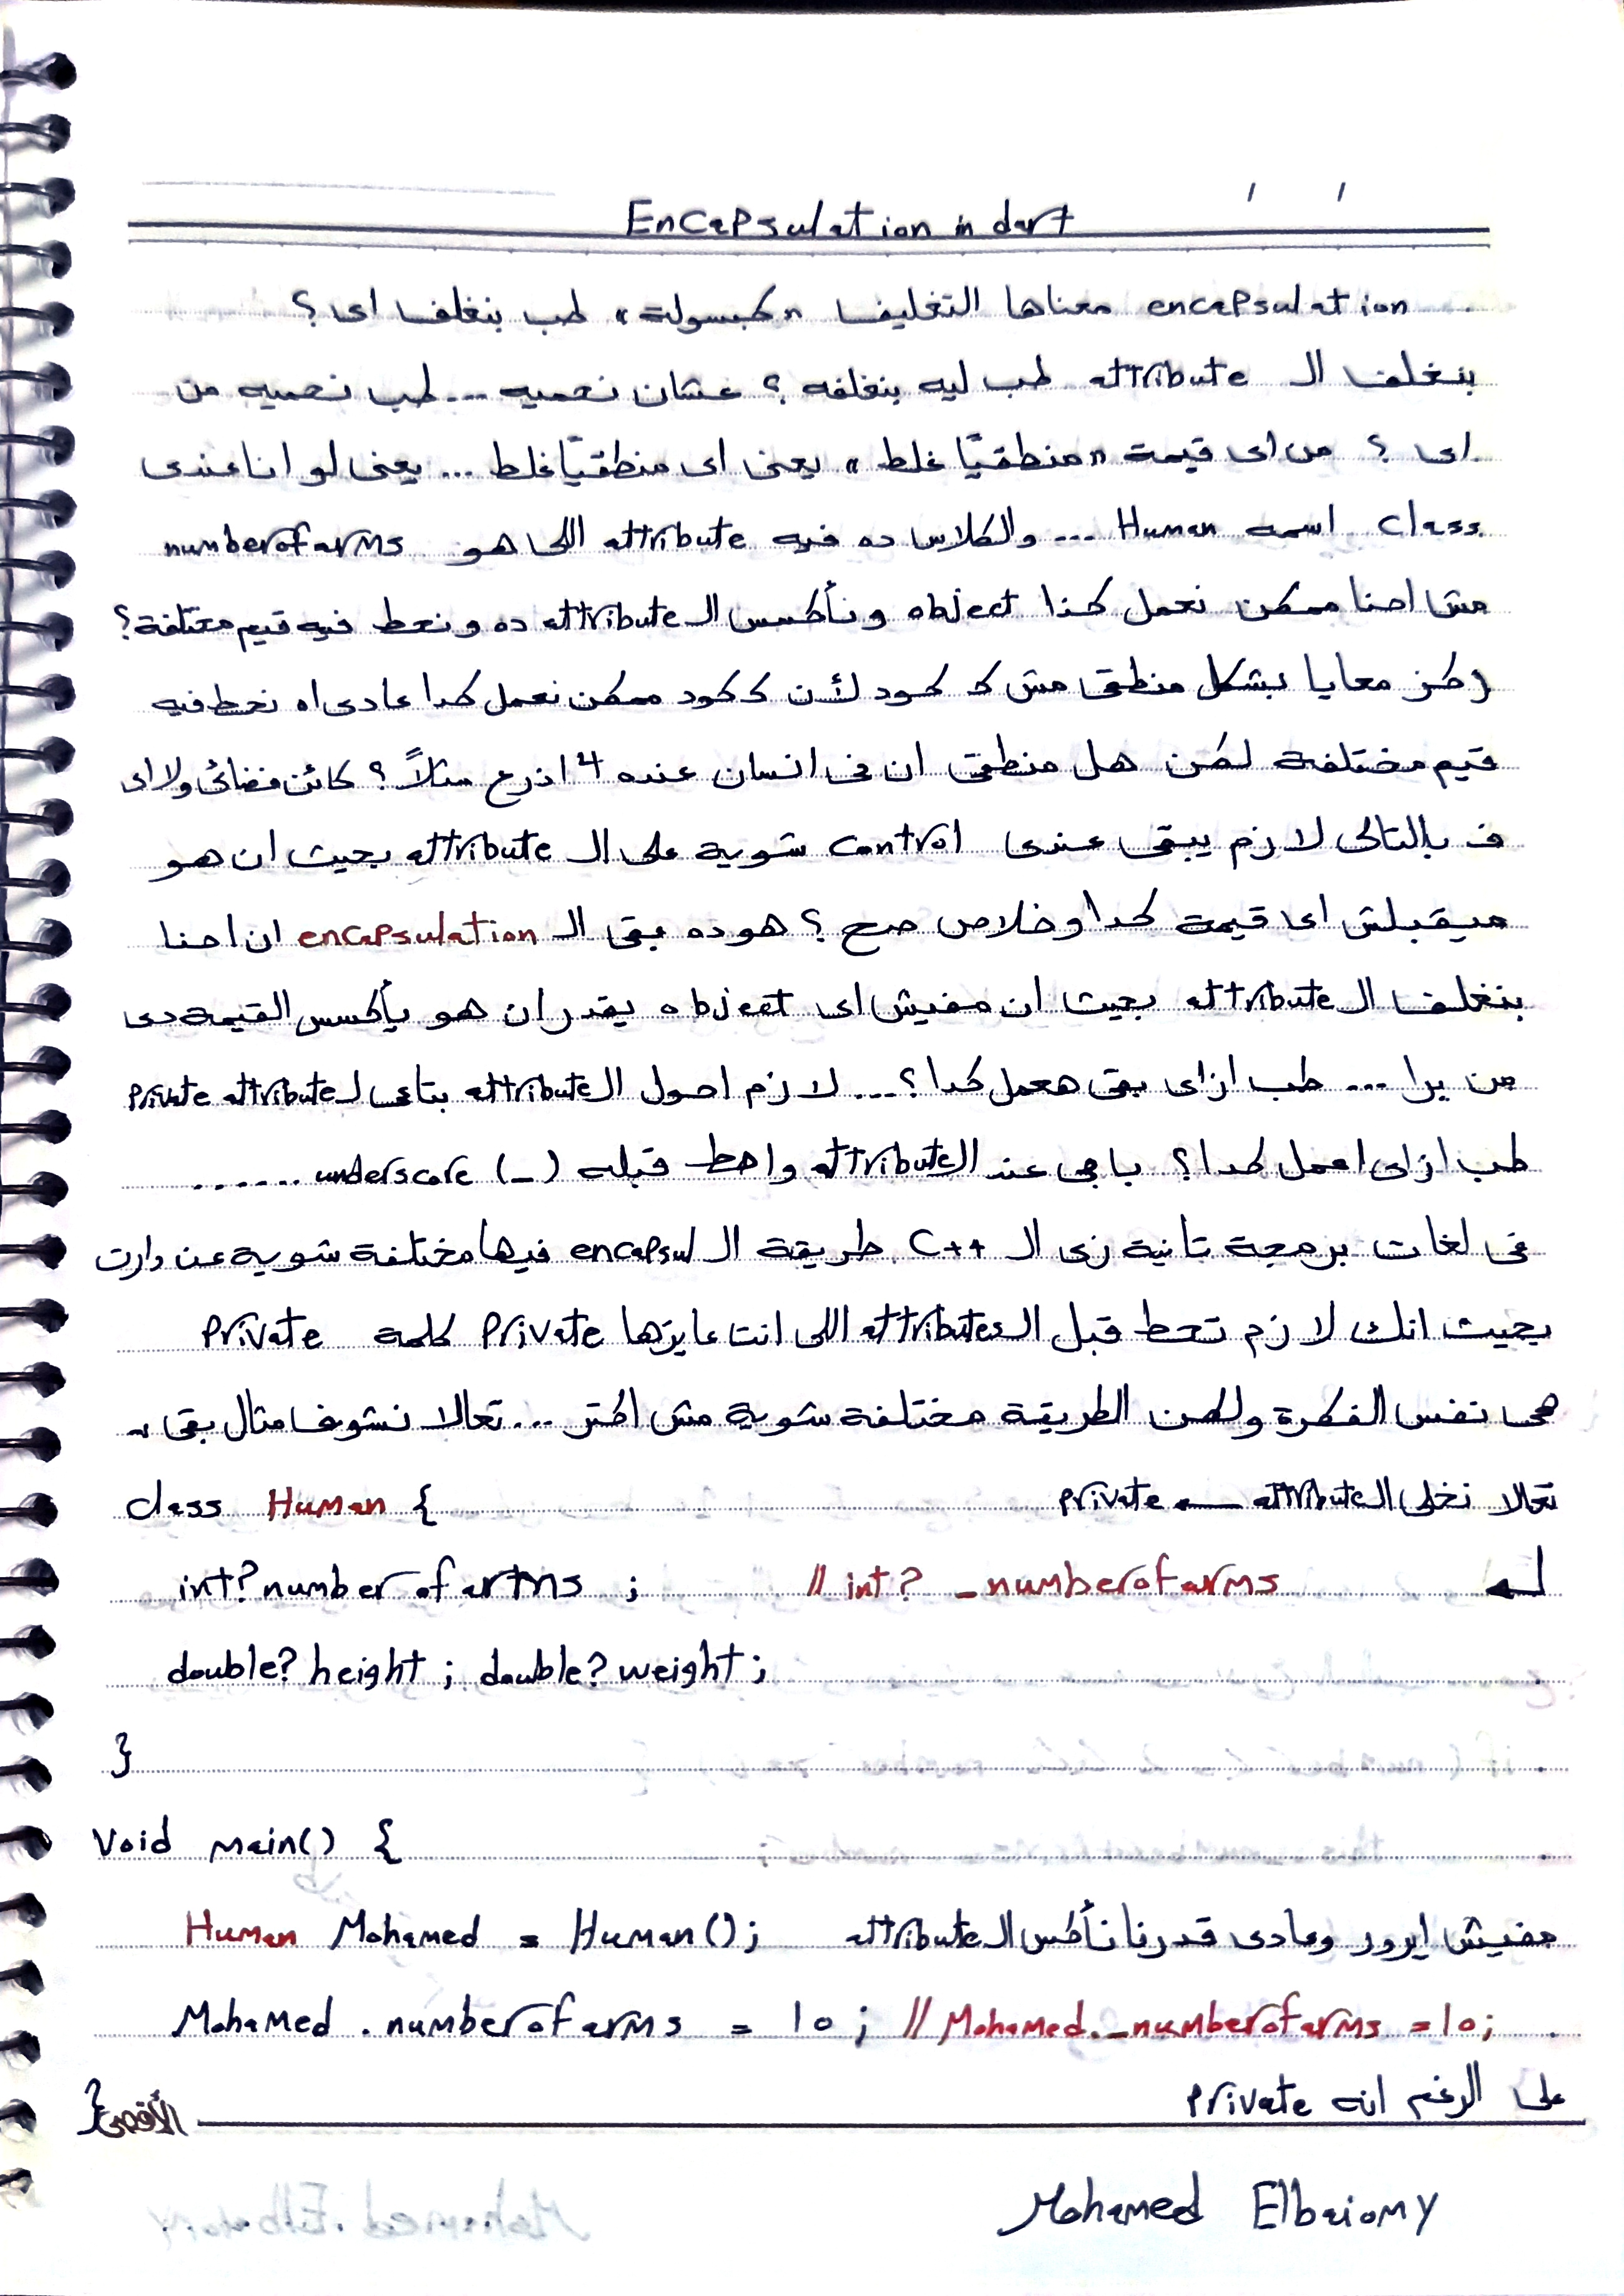 Encapsulation in dart
encapsulation معناها التغليف "كبسولة" طب بنغلف اى ؟
بنغلف ال attribute طب ليه بنغلفه ؟ عشان نحميه ... طب نحميه من
اى ؟ من اى قيمة "منطقيًا غلط" يعنى اى منطقيًا غلط ... يعنى لو انا عندى
class اسمه Human ... والكلاس ده فيه attribute اللى هو numberofarms
مش احنا ممكن نعمل كذا object و نأكسس ال attribute ده و نحط فيه قيم مختلفة ؟
ركز معايا بشكل منطقى مش ك كود لأن ككود ممكن نعمل كدا عادى اه نحط فيه
قيم مختلفة لكن هل منطقى ان فى انسان عنده 4 اذرع مثلاً ؟ كائن فضائى ولا اى
ف بالتالى لازم يبقى عندى control شوية على ال attribute بحيث ان هو
ميقبلش اى قيمة كدا و خلاص صح ؟ هو ده بقى ال encapsulation ان احنا
بنغلف ال attribute بحيث ان مفيش اى object يقدر ان هو يأكسس القيمة دى
من برا ... طب ازاى بقى هعمل كدا ؟ ... لازم احول ال attribute بتاعى ل private attribute
طب ازاى اعمل كدا ؟ باجى عند ال attribute و احط قبله (_) underscore ......
فى لغات برمجة تانية زى ال C++ طريقة ال encapsul فيها مختلفة شوية عن دارت
بحيث انك لازم تحط قبل ال attributes اللى انت عايزها private كلمة private
هى نفس الفكرة ولكن الطريقة مختلفة شوية مش اكتر ... تعالا نشوف مثال بقى ..
تعالا نخلى ال attribute ← private
class Human {
int? numberofarms ; // int? _numberofarms
double? height ; double? weight ;
}
void main() {
Human Mohamed = Human() ; مفيش ايرور وعادى قدرنا نأكسس ال attribute
Mohamed . numberofarms = 10 ; // Mohamed._numberofarms = 10 ;
على الرغم انه private
}
الأقصى
Mohamed Elbaiomy